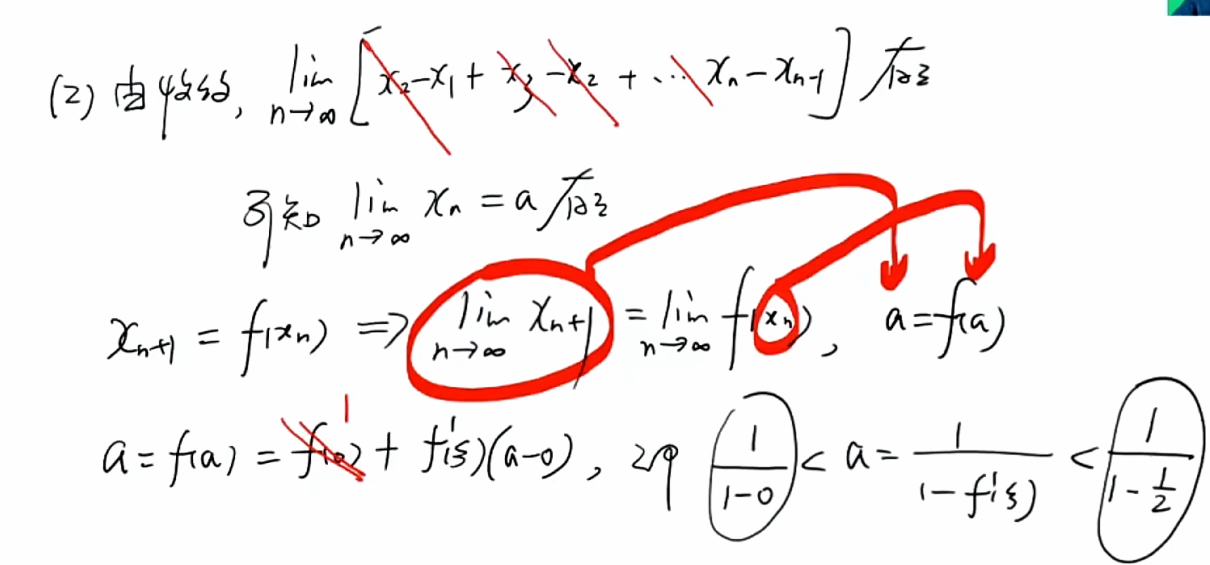 (2) 由收敛, lim n→∞ [x₂-x₁+x₃-x₂+⋯xₙ-xₙ₋₁] 存在
可知 lim n→∞ xₙ = a 存在
xₙ₊₁ = f(xₙ) ⇒ lim n→∞ xₙ₊₁ = lim n→∞ f(xₙ), a=f(a)
1
a = f(a) = f(0) + f'(ξ)(a-0), 则 1/(1-0) < a = 1/(1-f'(ξ)) < 1/(1-1/2)